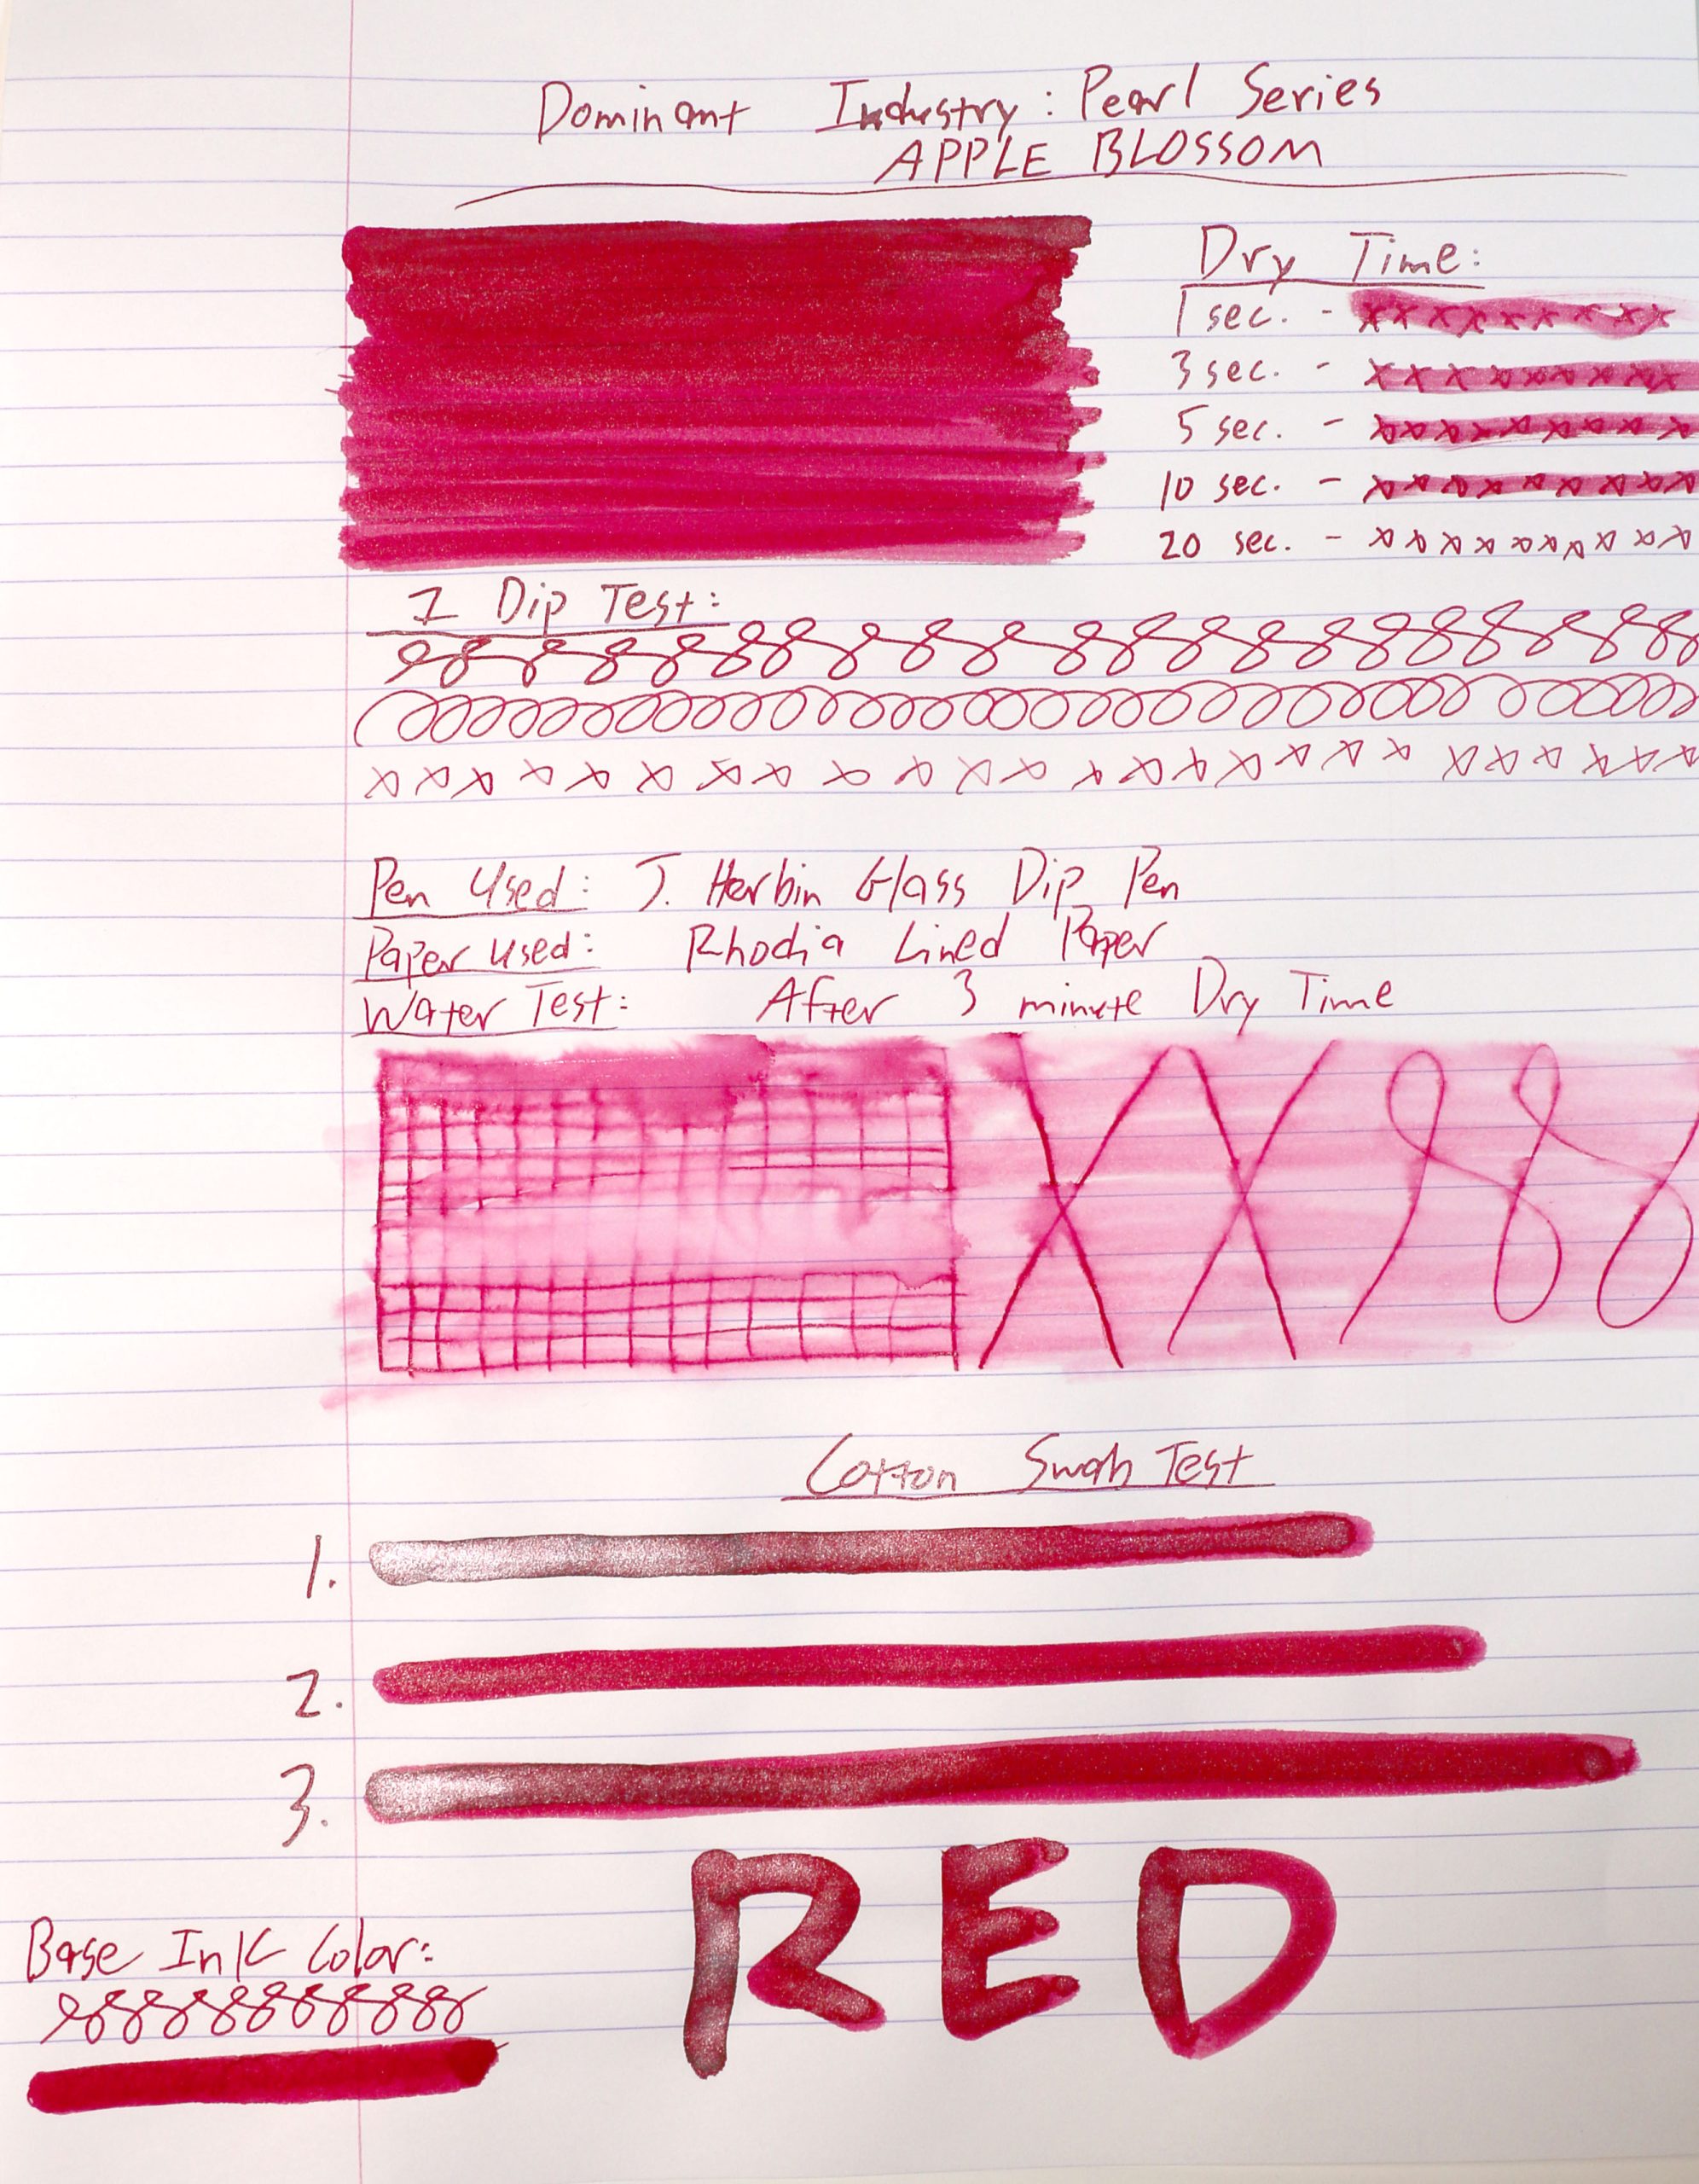 Dominant Industry: Pearl Series
APPLE BLOSSOM
Dry Time:
1 sec. - xxxxxxxxx
3 sec. - xxxxxxxxx
5 sec. - xxxxxxxxx
10 sec. - xxxxxxxxx
20 sec. - xxxxxxxxxx
1 Dip Test:
Pen Used: J. Herbin Glass Dip Pen
Paper Used: Rhodia Lined Paper
Water Test: After 3 minute Dry Time
XX
Cotton Swab Test
1.
2.
3.
RED
Base Ink Color: